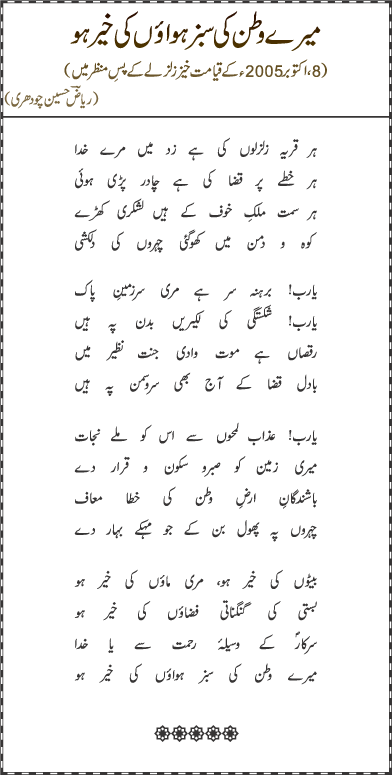 میرے وطن کی سبز ہواؤں کی خیر ہو
(8،اکتوبر 2005ء کے قیامت خیز زلزلے کے پس منظر میں)
(ریاضؔ حسین چودھری)
ہر قریہ زلزلوں کی ہے زد میں مرے خدا
ہر خطے پر قضا کی ہے چادر پڑی ہوئی
ہر سمت ملکِ خوف کے ہیں لشکری کھڑے
کوہ و دمن میں کھوگئی چہروں کی دلکشی
یارب! برہنہ سر ہے مری سرزمینِ پاک
یارب! شکستگی کی لکیریں بدن پہ ہیں
رقصاں ہے موت وادیٔ جنت نظیر میں
بادل قضا کے آج بھی سروسمن پہ ہیں
یارب! عذاب لمحوں سے اس کو ملے نجات
میری زمین کو صبرو سکون و قرار دے
باشندگانِ ارضِ وطن کی خطا معاف
چہروں پہ پھول بن کے جو مہکے بہار دے
بیٹوں کی خیر ہو، مری ماؤں کی خیر ہو
بستی کی گنگناتی فضاؤں کی خیر ہو
سرکارؐ کے وسیلۂ رحمت سے یا خدا
میرے وطن کی سبز ہواؤں کی خیر ہو